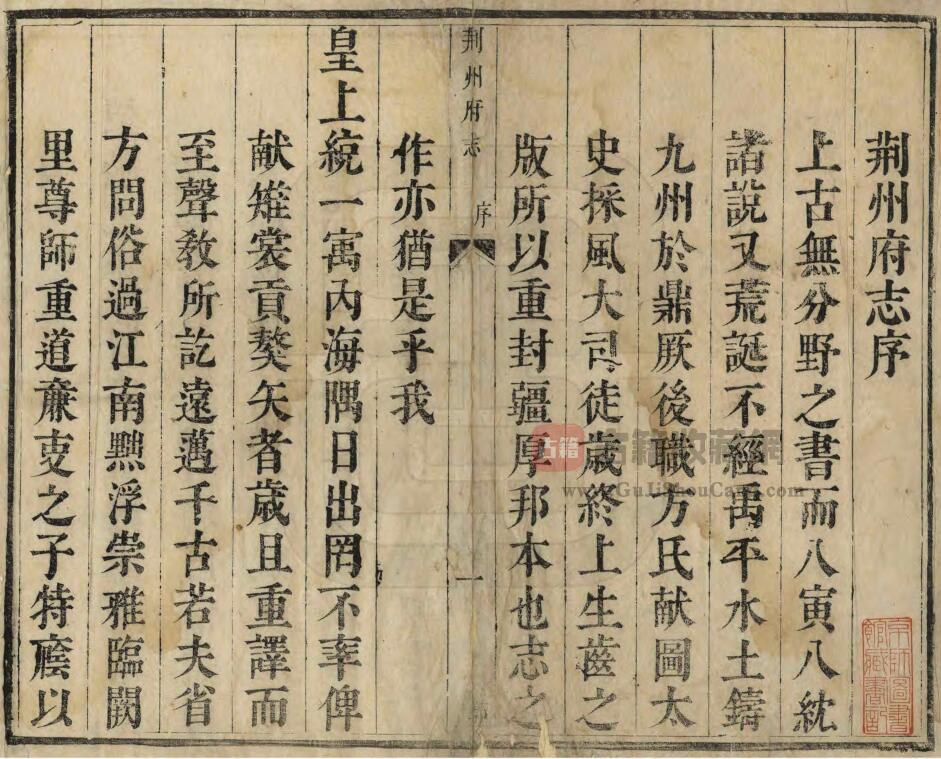 荆州府志序
上古無分野之書而八寅八紘
諸說又荒誕不經禹平水土鑄
九州於鼎厥後職方氏献圖太
史採風大司徒歲終上生齒之
版所以重封疆厚邦本也志之
作亦猶是乎我
荆州府志
序
一
皇上統一寓內海隅日出罔不率俾
献雉裳貢獒矢者歲且重譯而
至聲敎所訖遠邁千古若夫省
方問俗過江南黜浮崇雅臨闕
里尊師重道亷吏之子特廕以
京師圖書
館藏書記
古籍
古籍收藏網
www.GuJiShouCang.com